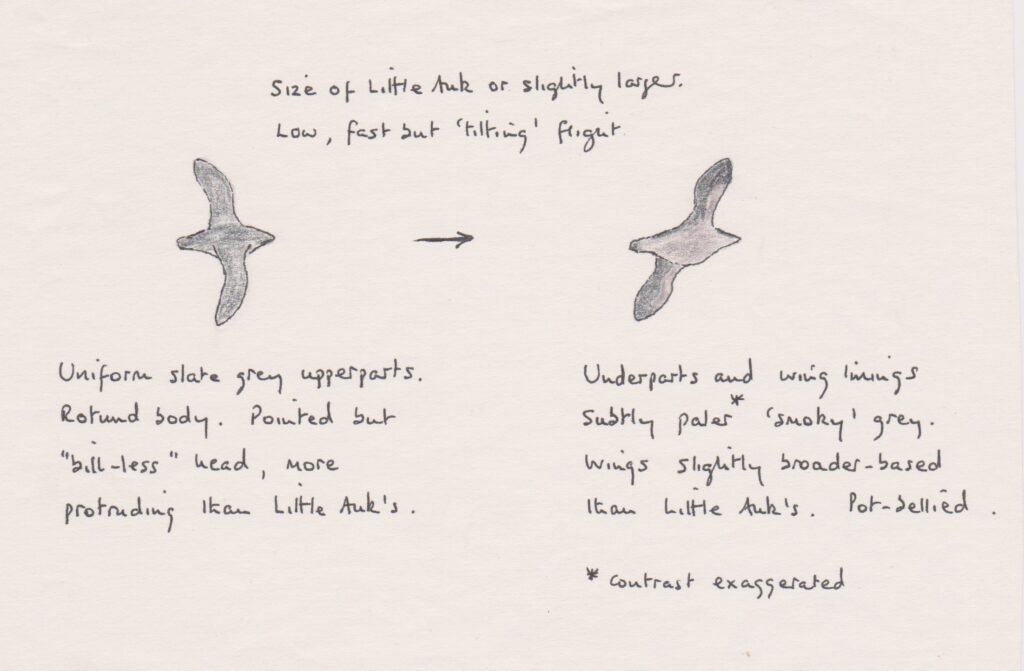 Size of Little Auk or slightly larger.
Low, fast but 'tilting' flight.
Uniform slate grey upperparts.
Rotund body. Pointed but
"bill-less" head, more
protruding than Little Auk's.
Underparts and wing linings
subtly paler* 'smoky' grey.
Wings slightly broader-based
than Little Auk's. Pot-bellied.
* contrast exaggerated